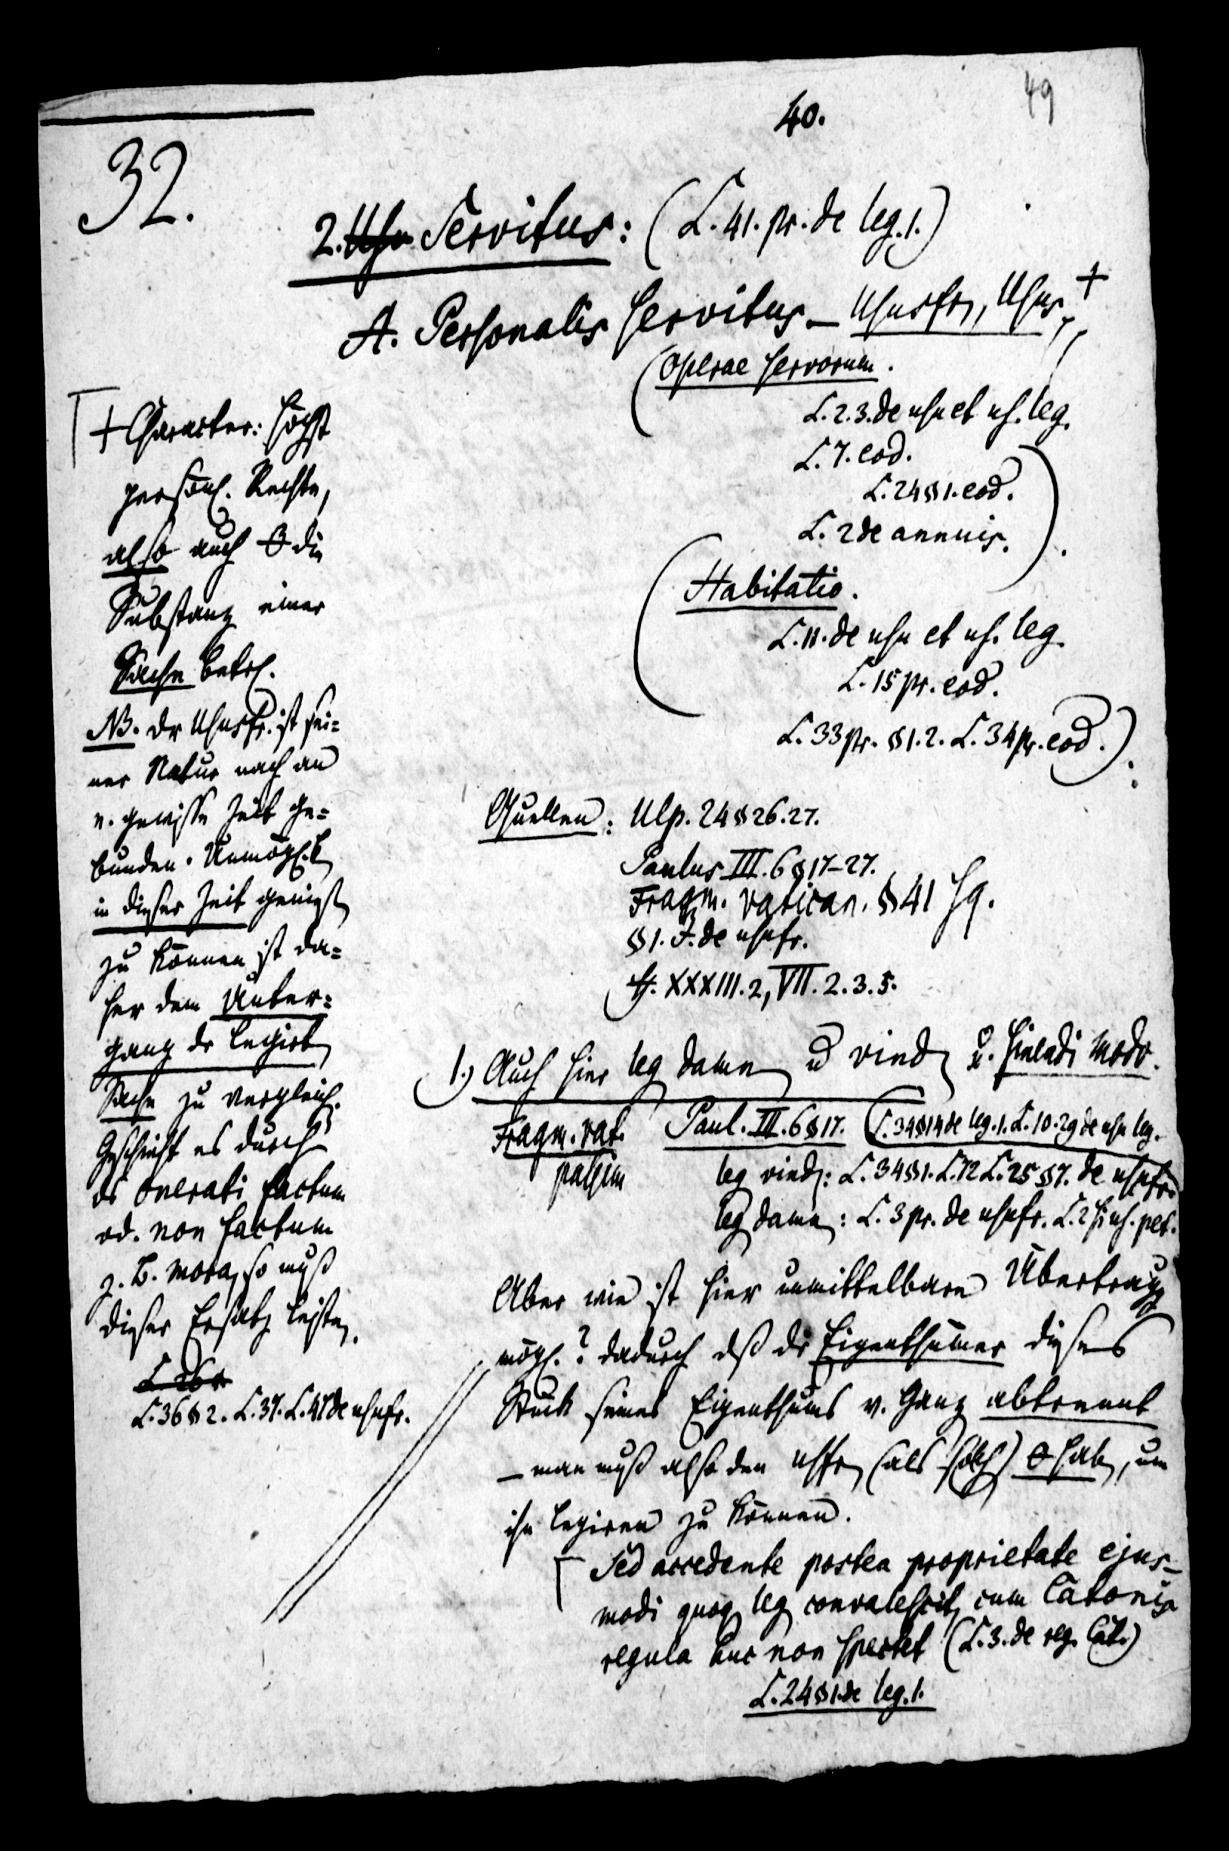 49
40.
32.
2. Usu Servitus: (L. 41. pr. de leg. 1.)
A. Personalis servitus – Ususfr, Usus, +
(Operae servorum.
L. 2. 3. de usu et us. leg.
L. 7. eod.
L. 24 § 1. eod.
L. 2 de annuis.)
(Habitatio.
L. 11. de usu et us. leg.
L. 15 pr. eod.
L. 33 pr. § 1. 2. L. 34 pr. eod.)
Quellen: Ulp. 24 § 26. 27.
Paulus III. 6 § 17–27.
Fragm. vatican. § 41 sq.
§ 1. J. de usufr.
ff. XXXIII. 2, VII. 2. 3. 5.
1.) Auch hier leg damn u vind u. sinendi modo.
Fragm. vat. Paul. III. 6 § 17. (L. 34 § 14 de leg. 1. L. 10. 29 de usu leg.
passim leg vind: L. 34 § 1. L. 12 L. 25 § 7. de usufr.
leg damn: L. 3 pr. de usufr. L. 2 si us. pet.
Aber wie ist hier unmittelbare Übertragg
mögl.? dadurch dß dr Eigenthümer dieses
Stück seines Eigenthums v. Ganz abtrennt
– man muß also den usfr (als solch) θ hab, um
ihn legiren zu können.
Sed accedente postea proprietate ejus-
modi quoq leg convalescit, cum Catonis
regula huc non spectet (L. 3. de reg. Cat.)
L. 24 § 1. de leg. 1.
+ Character: höchst
persönl. Rechte,
also auch θ die
Substanz einer
Sache betr.
NB. dr Ususfr. ist sei-
ner Natur nach an
e. gewisse Zeit ge-
bunden. Unmöglk
in dieser Zeit genieß
zu können ist da-
her dem Unter-
gang dr legirt
Sache zu vergleich.
Geschieht es durch
ds onerati factum
od. non factum
z. B. mora, so muß
dieser Ersatz leisten.
L. 36 § 2. L. 37. L. 47 de usufr.